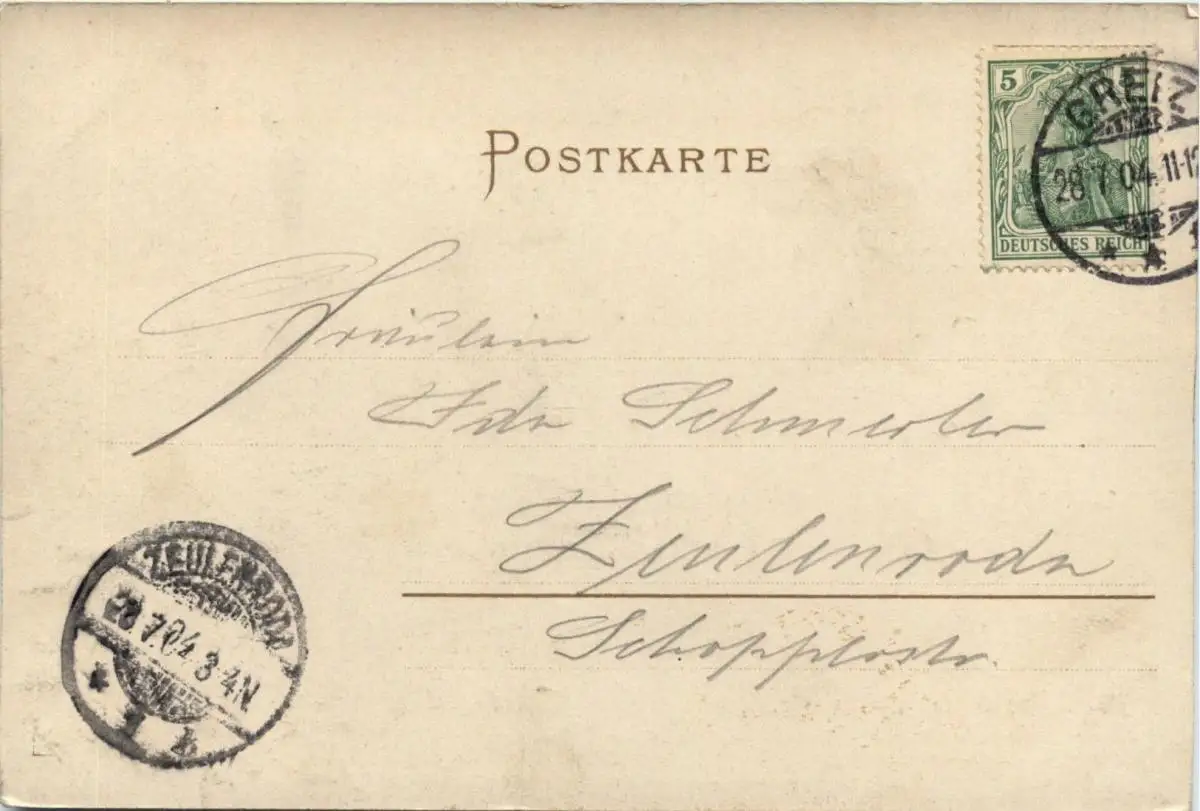 POSTKARTE
5 5
DEUTSCHES REICH
GREIZ
28 7 04. 11-12
Fräulein
Ida Schmerler
Zeulenroda
ZEULENRODA
28 7 04. 3-4N